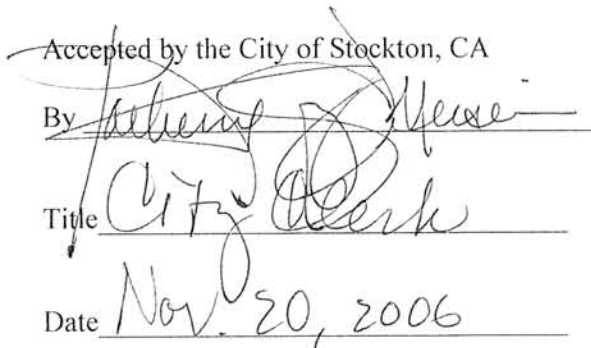 Accepted by the City of Stockton, CA
By
Title City Clerk
Date Nov. 20, 2006